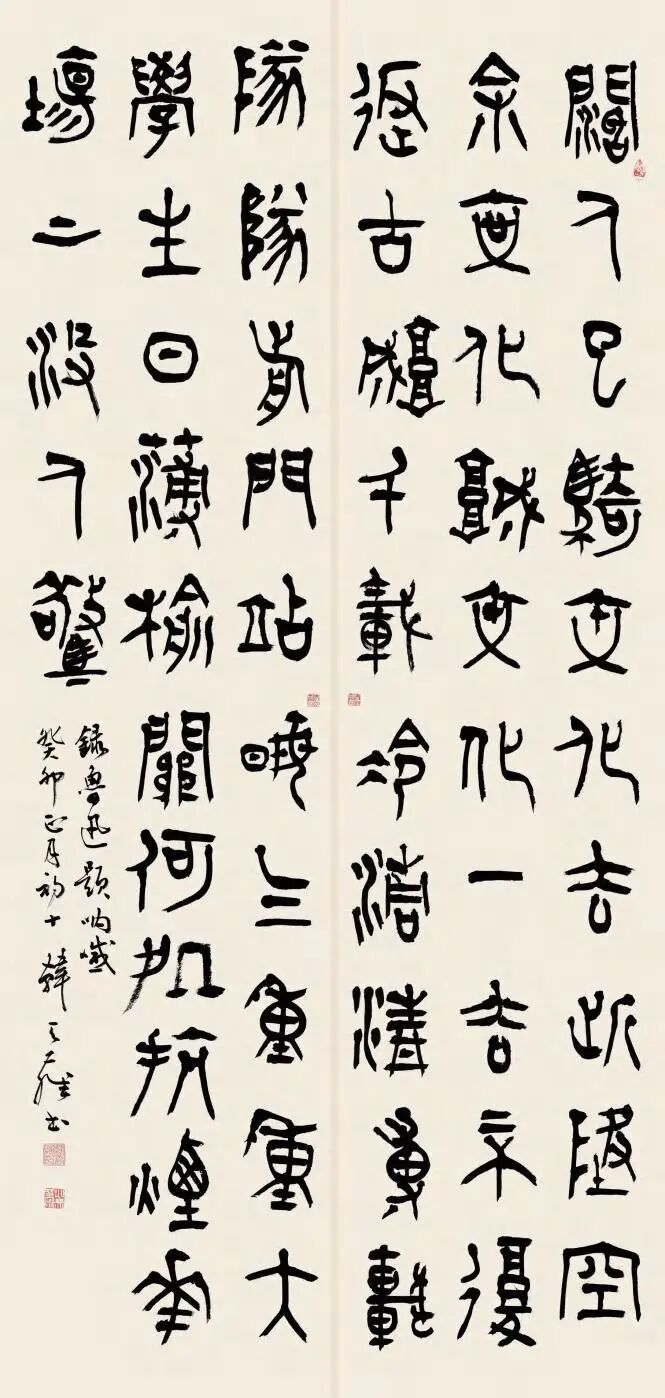 闊人已騎文化去此地空
余文化城文化一去不復
返古城千載冷清清專車
隊隊前門站晦气重重大
學生日薄榆關何処抗煙花
場上没人驚
錄魯迅題吶喊
癸卯正月初十韓天雍書